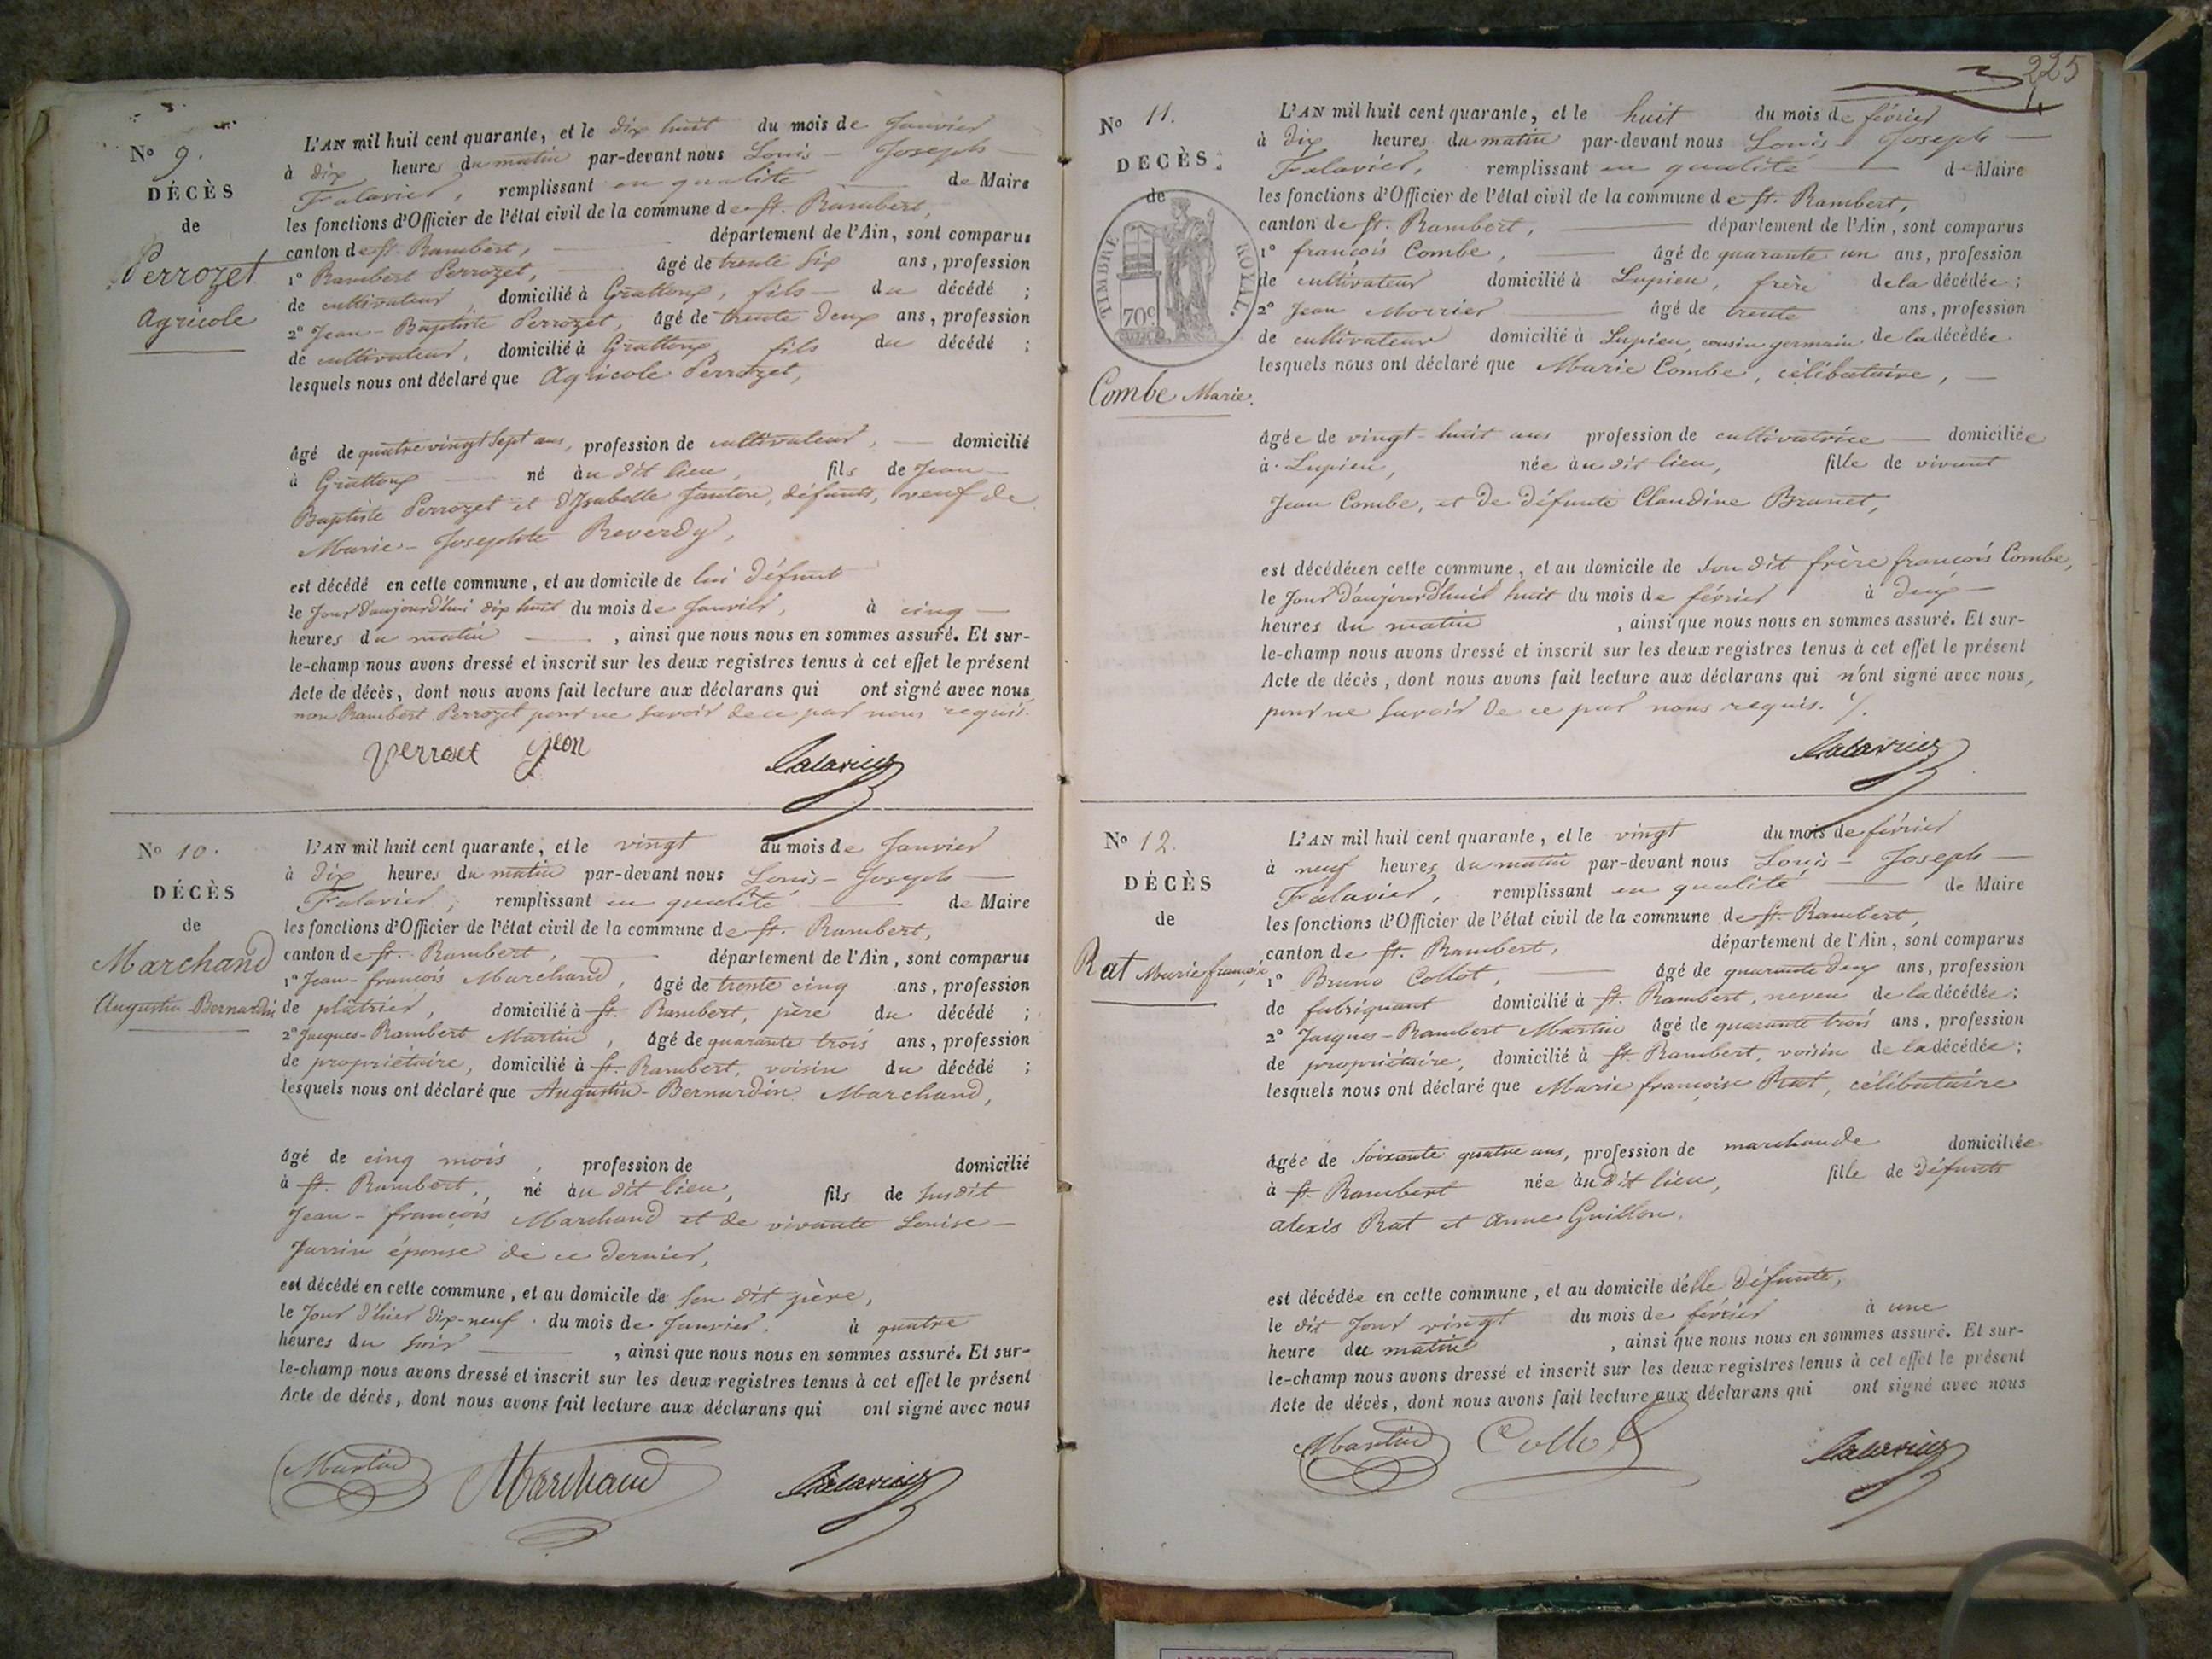 N° 9.
DÉCÈS
de
Perrozet
Agricole
L'AN mil huit cent quarante, et le dix huit du mois de Janvier
à dix heures du matin par-devant nous Louis – Joseph –
Falavier, remplissant en qualité de Maire
les fonctions d'Officier de l'état civil de la commune de St. Rambert,
canton de St. Rambert, département de l'Ain, sont comparus
1° Rambert Perrozet, âgé de trente six ans, profession
de cultivateur, domicilié à Grattoux, fils du décédé ;
2° Jean-Baptiste Perrozet, âgé de trente deux ans, profession
de cultivateur, domicilié à Grattoux, fils du décédé ;
lesquels nous ont déclaré que Agricole Perrozet,
âgé de quatre vingt sept ans, profession de cultivateur, domicilié
à Grattoux né au dit lieu, fils de Jean
Baptiste Perrozet et d'Isabelle Janton, défunts, veuf de
Marie-Josephte Reverdy,
est décédé en cette commune, et au domicile de lui défunt
le Jour d'aujourd'hui dix huit du mois de Janvier, à cinq
heures du matin, ainsi que nous nous en sommes assuré. Et sur-
le-champ nous avons dressé et inscrit sur les deux registres tenus à cet effet le présent
Acte de décès, dont nous avons fait lecture aux déclarans qui ont signé avec nous
non Rambert Perrozet pour ne savoir de ce par nous requis.
Falavier
N° 10.
DÉCÈS
de
Marchand
Augustin Bernardin
L'AN mil huit cent quarante, et le vingt du mois de Janvier
à dix heures du matin par-devant nous Louis – Joseph –
Falavier, remplissant en qualité de Maire
les fonctions d'Officier de l'état civil de la commune de St. Rambert,
canton de St. Rambert, département de l'Ain, sont comparus
1° Jean-françois Marchand, âgé de trente cinq ans, profession
de plâtrier, domicilié à St. Rambert, père du décédé ;
2° Jacques-Rambert Martin, âgé de quarante trois ans, profession
de propriétaire, domicilié à St. Rambert, voisin du décédé ;
lesquels nous ont déclaré que Augustin-Bernardin Marchand,
âgé de cinq mois, profession de domicilié
à St. Rambert, né au dit lieu, fils de susdit
Jean-françois Marchand et de vivante Louise –
Jurrin épouse de ce dernier,
est décédé en cette commune, et au domicile de son dit père,
le Jour d'hier dix-neuf du mois de Janvier, à quatre
heures du soir, ainsi que nous nous en sommes assuré. Et sur-
le-champ nous avons dressé et inscrit sur les deux registres tenus à cet effet le présent
Acte de décès, dont nous avons fait lecture aux déclarans qui ont signé avec nous
Martin Marchand Falavier
225
N° 11.
DÉCÈS
de
TIMBRE ROYAL.
70c
Combe Marie.
L'AN mil huit cent quarante, et le huit du mois de février
à dix heures du matin par-devant nous Louis Joseph –
Falavier, remplissant en qualité de Maire
les fonctions d'Officier de l'état civil de la commune de St. Rambert,
canton de St. Rambert, département de l'Ain, sont comparus
1° françois Combe, âgé de quarante un ans, profession
de cultivateur domicilié à Lupieu, frère de la décédée ;
2° Jean Morrier âgé de trente ans, profession
de cultivateur domicilié à Lupieu, cousin germain de la décédée
lesquels nous ont déclaré que Marie Combe, célibataire, –
âgée de vingt-huit ans profession de cultivatrice domiciliée
à Lupieu, née au dit lieu, fille de vivant
Jean Combe, et de défunte Claudine Brunet,
est décédée en cette commune, et au domicile de son dit frère françois Combe,
le Jour d'aujourd'hui huit du mois de février à deux
heures du matin, ainsi que nous nous en sommes assuré. Et sur-
le-champ nous avons dressé et inscrit sur les deux registres tenus à cet effet le présent
Acte de décès, dont nous avons fait lecture aux déclarans qui n'ont signé avec nous,
pour ne savoir de ce par nous requis. /.
Falavier
N° 12.
DÉCÈS
de
Rat Marie françoise
L'AN mil huit cent quarante, et le vingt du mois de février
à neuf heures du matin par-devant nous Louis – Joseph –
Falavier, remplissant en qualité de Maire
les fonctions d'Officier de l'état civil de la commune de St. Rambert,
canton de St. Rambert, département de l'Ain, sont comparus
1° Bruno Collot, âgé de quarante deux ans, profession
de fabriquant domicilié à St. Rambert, neveu de la décédée ;
2° Jacques-Rambert Martin âgé de quarante trois ans, profession
de propriétaire, domicilié à St. Rambert, voisin de la décédée ;
lesquels nous ont déclaré que Marie françoise Rat, célibataire
âgée de soixante quatre ans, profession de marchande domiciliée
à St. Rambert née au dit lieu, fille de défunts
alexis Rat et anne Guillon,
est décédée en cette commune, et au domicile d'elle défunte,
le dit Jour vingt du mois de février à une
heure du matin, ainsi que nous nous en sommes assuré. Et sur-
le-champ nous avons dressé et inscrit sur les deux registres tenus à cet effet le présent
Acte de décès, dont nous avons fait lecture aux déclarans qui ont signé avec nous
Martin Collot Falavier